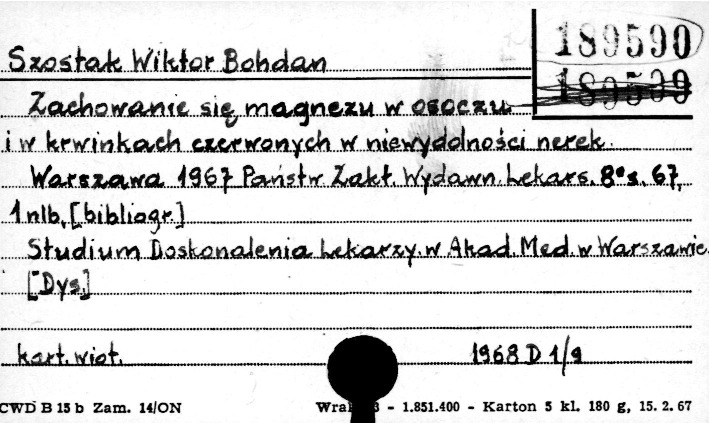 189590
Szostak Wiktor Bohdan
Zachowanie się magnezu w osoczu
i w krwinkach czerwonych w niewydolności nerek.
Warszawa 1967 Państw. Zakł. Wydawn. Lekars. 8° s. 67,
1 nlb, [bibliogr.]
Studium Doskonalenia Lekarzy. w Akad. Med. w Warszawie.
[Dys.]
kart. wiot. 1968 D 1/9
CWD B 15 b Zam. 14/ON - 1.851.400 - Karton 5 kl. 180 g, 15. 2. 67